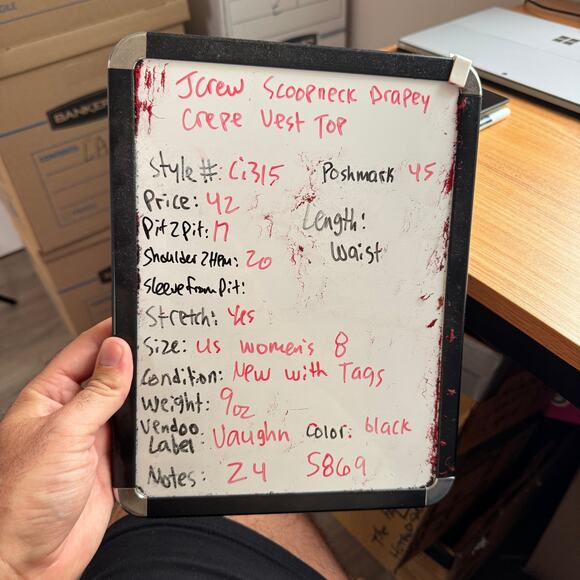 Jcrew Scoopneck Drapey
Crepe Vest Top
Style #: Ci315 Poshmark 45
Price: 42
Pit2Pit: 17 Length:
Shoulder2Hem: 20 Waist
Sleeve from Pit:
Stretch: Yes
Size: US women's 8
Condition: New with Tags
Weight: 9oz
Vendoo
Label: Vaughn Color: black
Notes: Z4 5869
BANKER